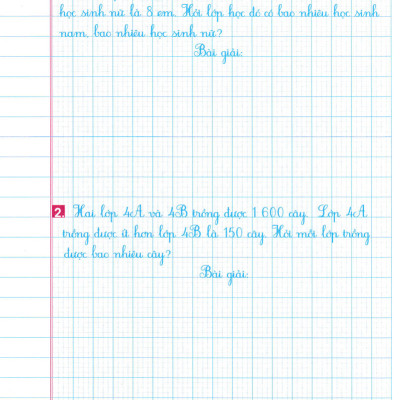 học sinh nữ là 8 em. Hỏi lớp học đó có bao nhiêu học sinh
nam, bao nhiêu học sinh nữ?
Bài giải:
2. Hai lớp 4A và 4B trồng được 1 600 cây. Lớp 4A
trồng được ít hơn lớp 4B là 150 cây. Hỏi mỗi lớp trồng
được bao nhiêu cây?
Bài giải: